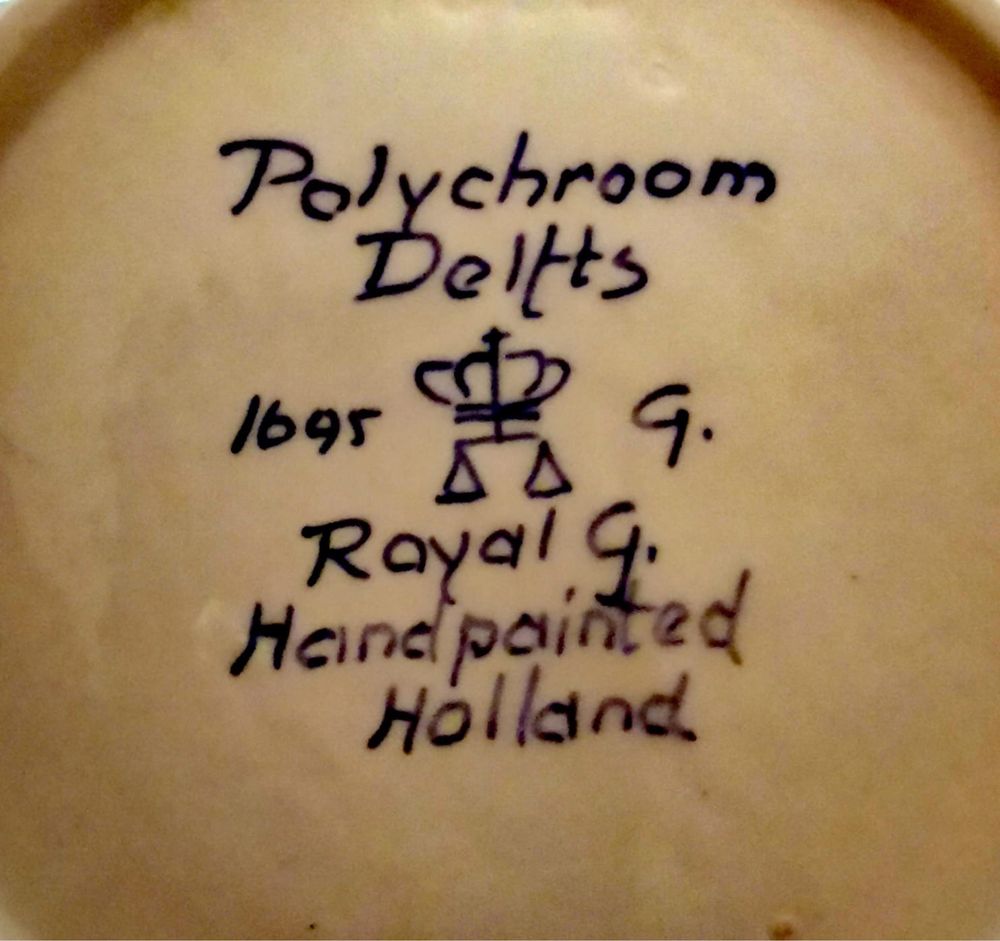 Polychroom
Delfts
1695 G.
Royal G.
Handpainted
Holland